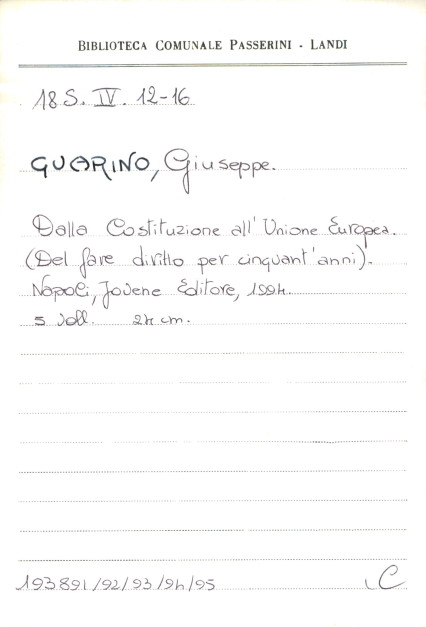 BIBLIOTECA COMUNALE PASSERINI - LANDI
18 S. IV. 12-16
GUARINO, Giuseppe.
Dalla Costituzione all'Unione Europea.
(Del fare diritto per cinquant'anni).
Napoli, Jovene Editore, 1994.
5 voll. 24 cm.
193891/92/93/94/95
C